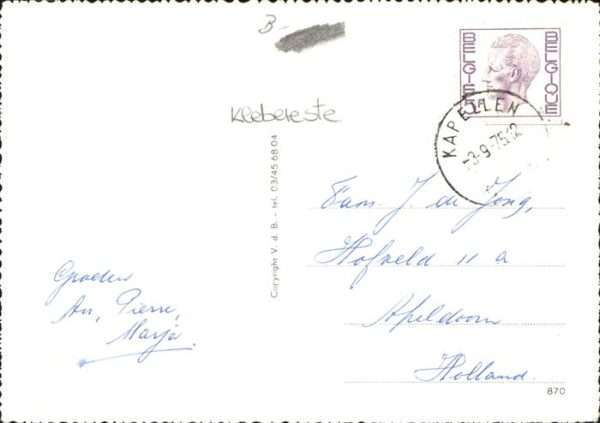 B-
BELGIË
BELGIQUE
KAPELLEN
-3-9-75 12
Klebereste
Copyright V. d. B. - tel. 03/45 68 04
Fam. J. de Jong,
Hofveld 11 a
Apeldoorn
Holland.
Groeten
An, Pierre,
Marja.
870